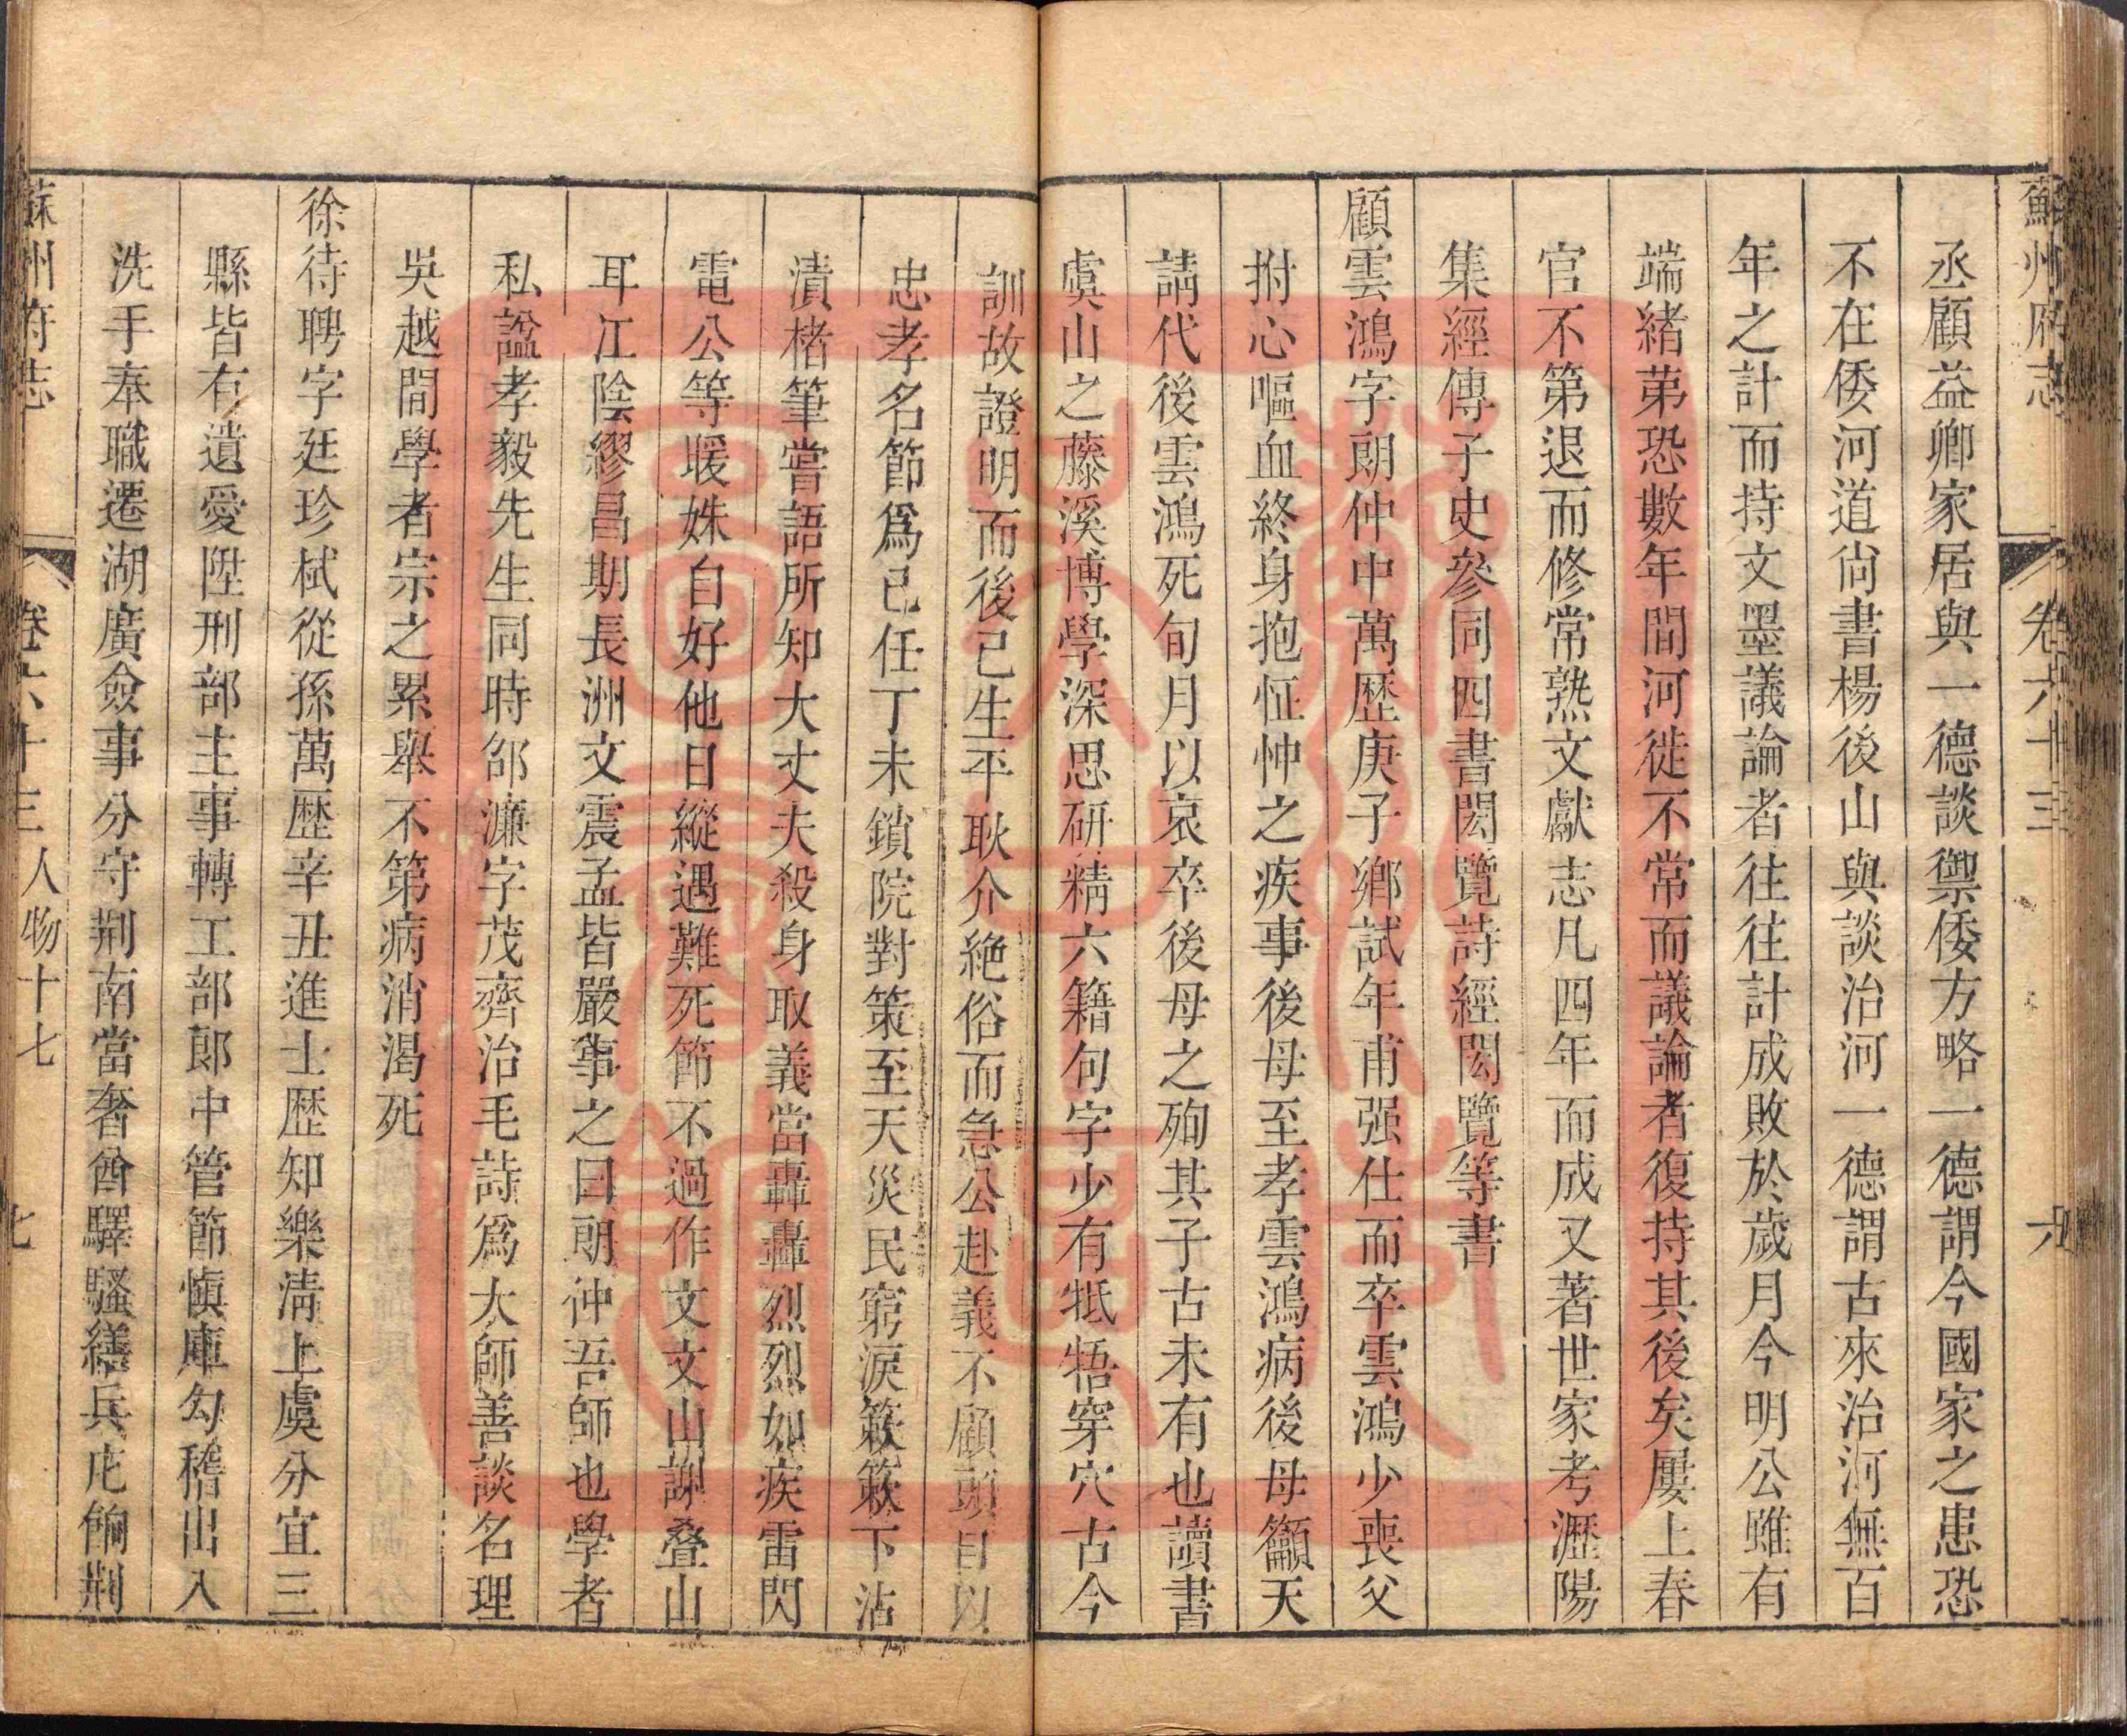 蘇州府志 卷六十三
丞顧益卿家居與一德談禦倭方略一德謂今國家之患恐
不在倭河道尙書楊後山與談治河一德謂古來治河無百
年之計而持文墨議論者往往計成敗於歲月今明公雖有
端緖苐恐數年間河徙不常而議論者復持其後矣屢上春
官不第退而修常熟文獻志凡四年而成又著世家考瀝陽
集經傳子史叅同四書閎覽詩經閎覽等書
顧雲鴻字朗仲中萬歷庚子鄕試年甫强仕而卒雲鴻少喪父
拊心嘔血終身抱怔忡之疾事後母至孝雲鴻病後母籲天
請代後雲鴻死旬月以哀卒後母之殉其子古未有也讀書
虞山之藤溪博學深思研精六籍句字少有牴牾穿穴古今
訓故證明而後已生平耿介絶俗而急公赴義不顧頭目以
忠孝名節爲己任丁未鎖院對策至天災民窮淚簌簌下沾
漬楮筆嘗語所知大丈夫殺身取義當轟轟烈烈如疾雷閃
電公等暖姝自好他日縱遇難死節不過作文文山謝疊山
耳江陰繆昌期長洲文震孟皆嚴事之曰朗仲吾師也學者
私諡孝毅先生同時邵濂字茂齊治毛詩爲大師善談名理
吳越間學者宗之累舉不第病消渴死
徐待聘字廷珍栻從孫萬歷辛丑進士歷知樂淸上虞分宜三
縣皆有遺愛陞刑部主事轉工部郎中管節愼庫勾稽出入
洗手奉職遷湖廣僉事分守荆南當奢酋驛騷繕兵庀餉荆
蘇州府志 卷六十三 人物十七 七